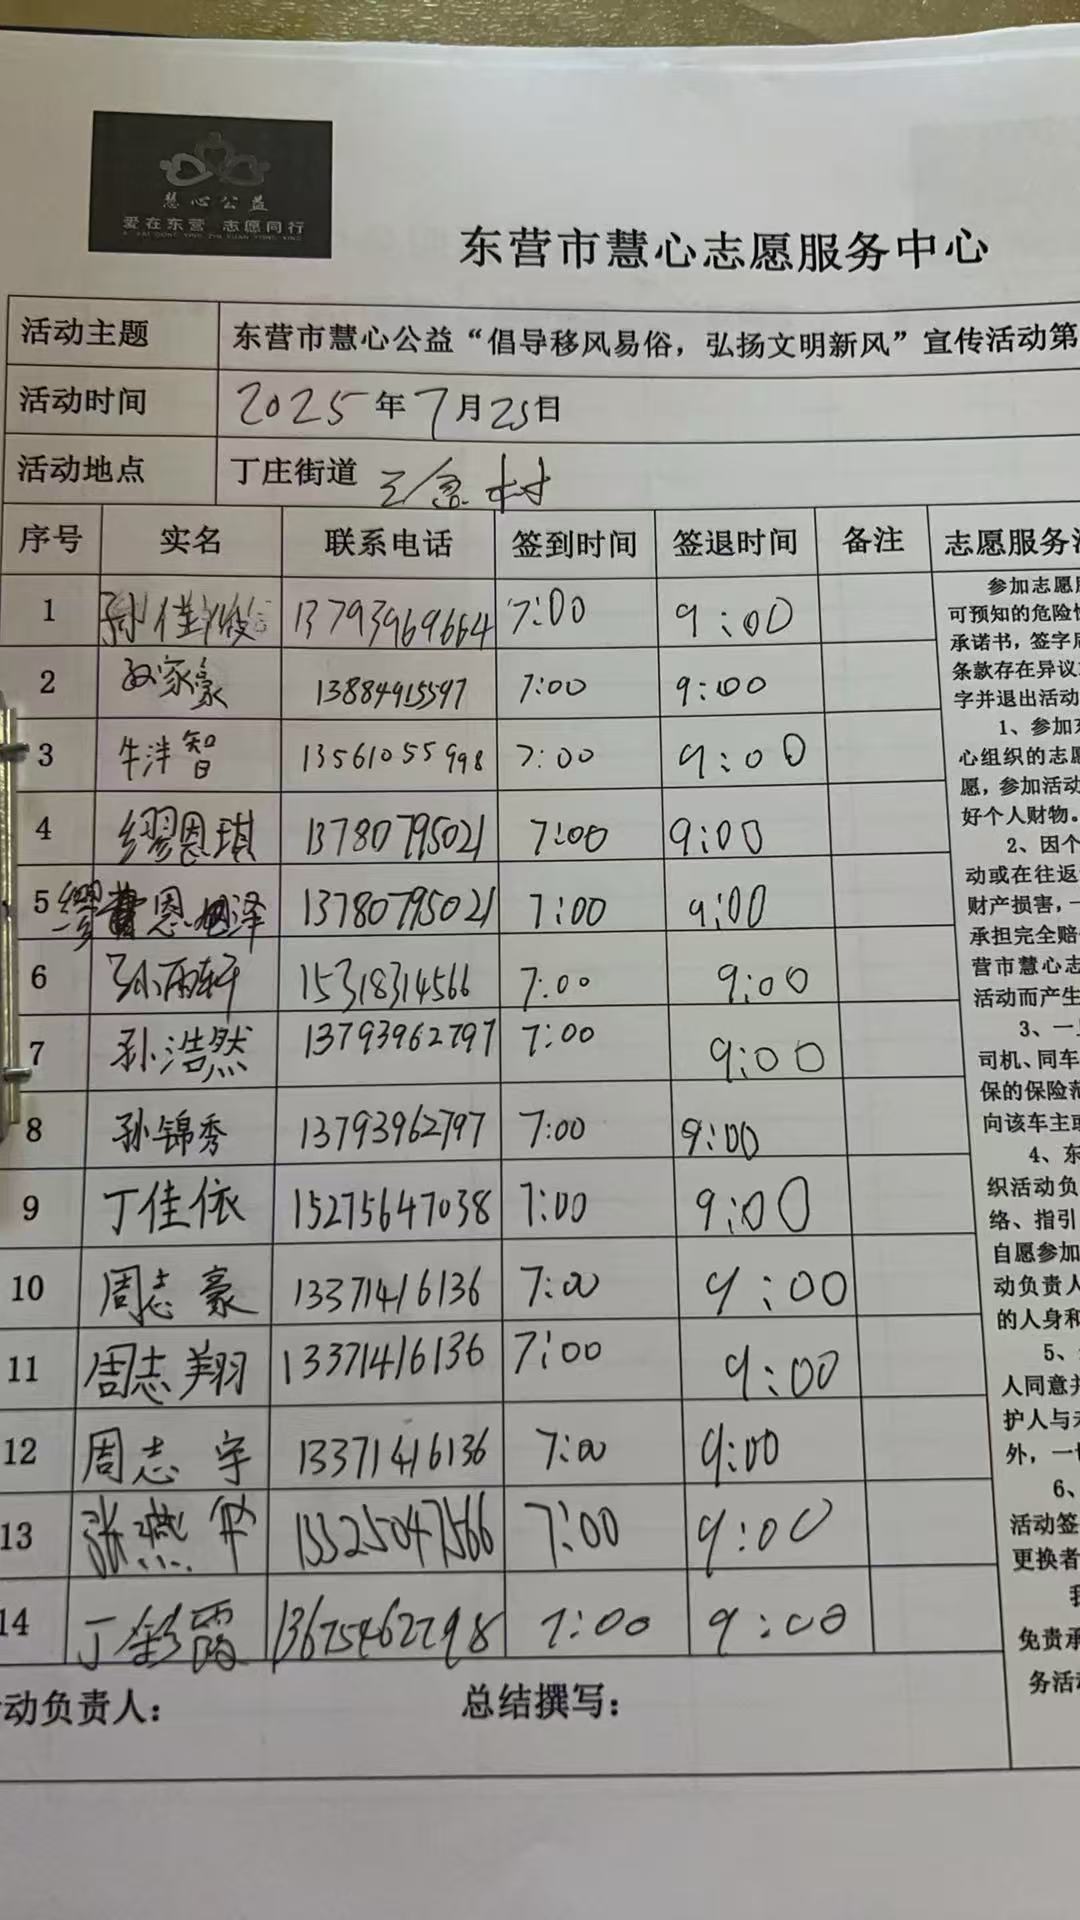 慧心公益
爱在东营 志愿同行
东营市慧心志愿服务中心
活动主题 东营市慧心公益“倡导移风易俗，弘扬文明新风”宣传活动第
活动时间 2025年7月25日
活动地点 丁庄街道 村
序号 实名 联系电话 签到时间 签退时间 备注 志愿服务
1 孙佳 13793969664 7:00 9:00
2 孙家豪 13884915597 7:00 9:00
3 牛沣智 13561055998 7:00 9:00
4 缪恩琪 13780795021 7:00 9:00
5 缪恩泽 13780795021 7:00 9:00
6 孙雨轩 15318314566 7:00 9:00
7 孙浩然 13793962797 7:00 9:00
8 孙锦秀 13793962797 7:00 9:00
9 丁佳依 15275647038 7:00 9:00
10 周志豪 13371416136 7:00 9:00
11 周志翔 13371416136 7:00 9:00
12 周志宇 13371416136 7:00 9:00
13 张燕 13325047566 7:00 9:00
14 丁彩霞 13675462798 7:00 9:00
动负责人： 总结撰写：
参加志愿
可预知的危险
承诺书，签字
条款存在异议
字并退出活动
1、参加
心组织的志愿
愿，参加活动
好个人财物。
2、因个
动或在往返
财产损害，一
承担完全赔
营市慧心志
活动而产生
3、一
司机、同车
保的保险范
向该车主或
4、东
织活动负
络、指引
自愿参加
动负责人
的人身和
5、
人同意并
护人与未
外，一切
6、
活动签
更换者
我
免责承
务活动